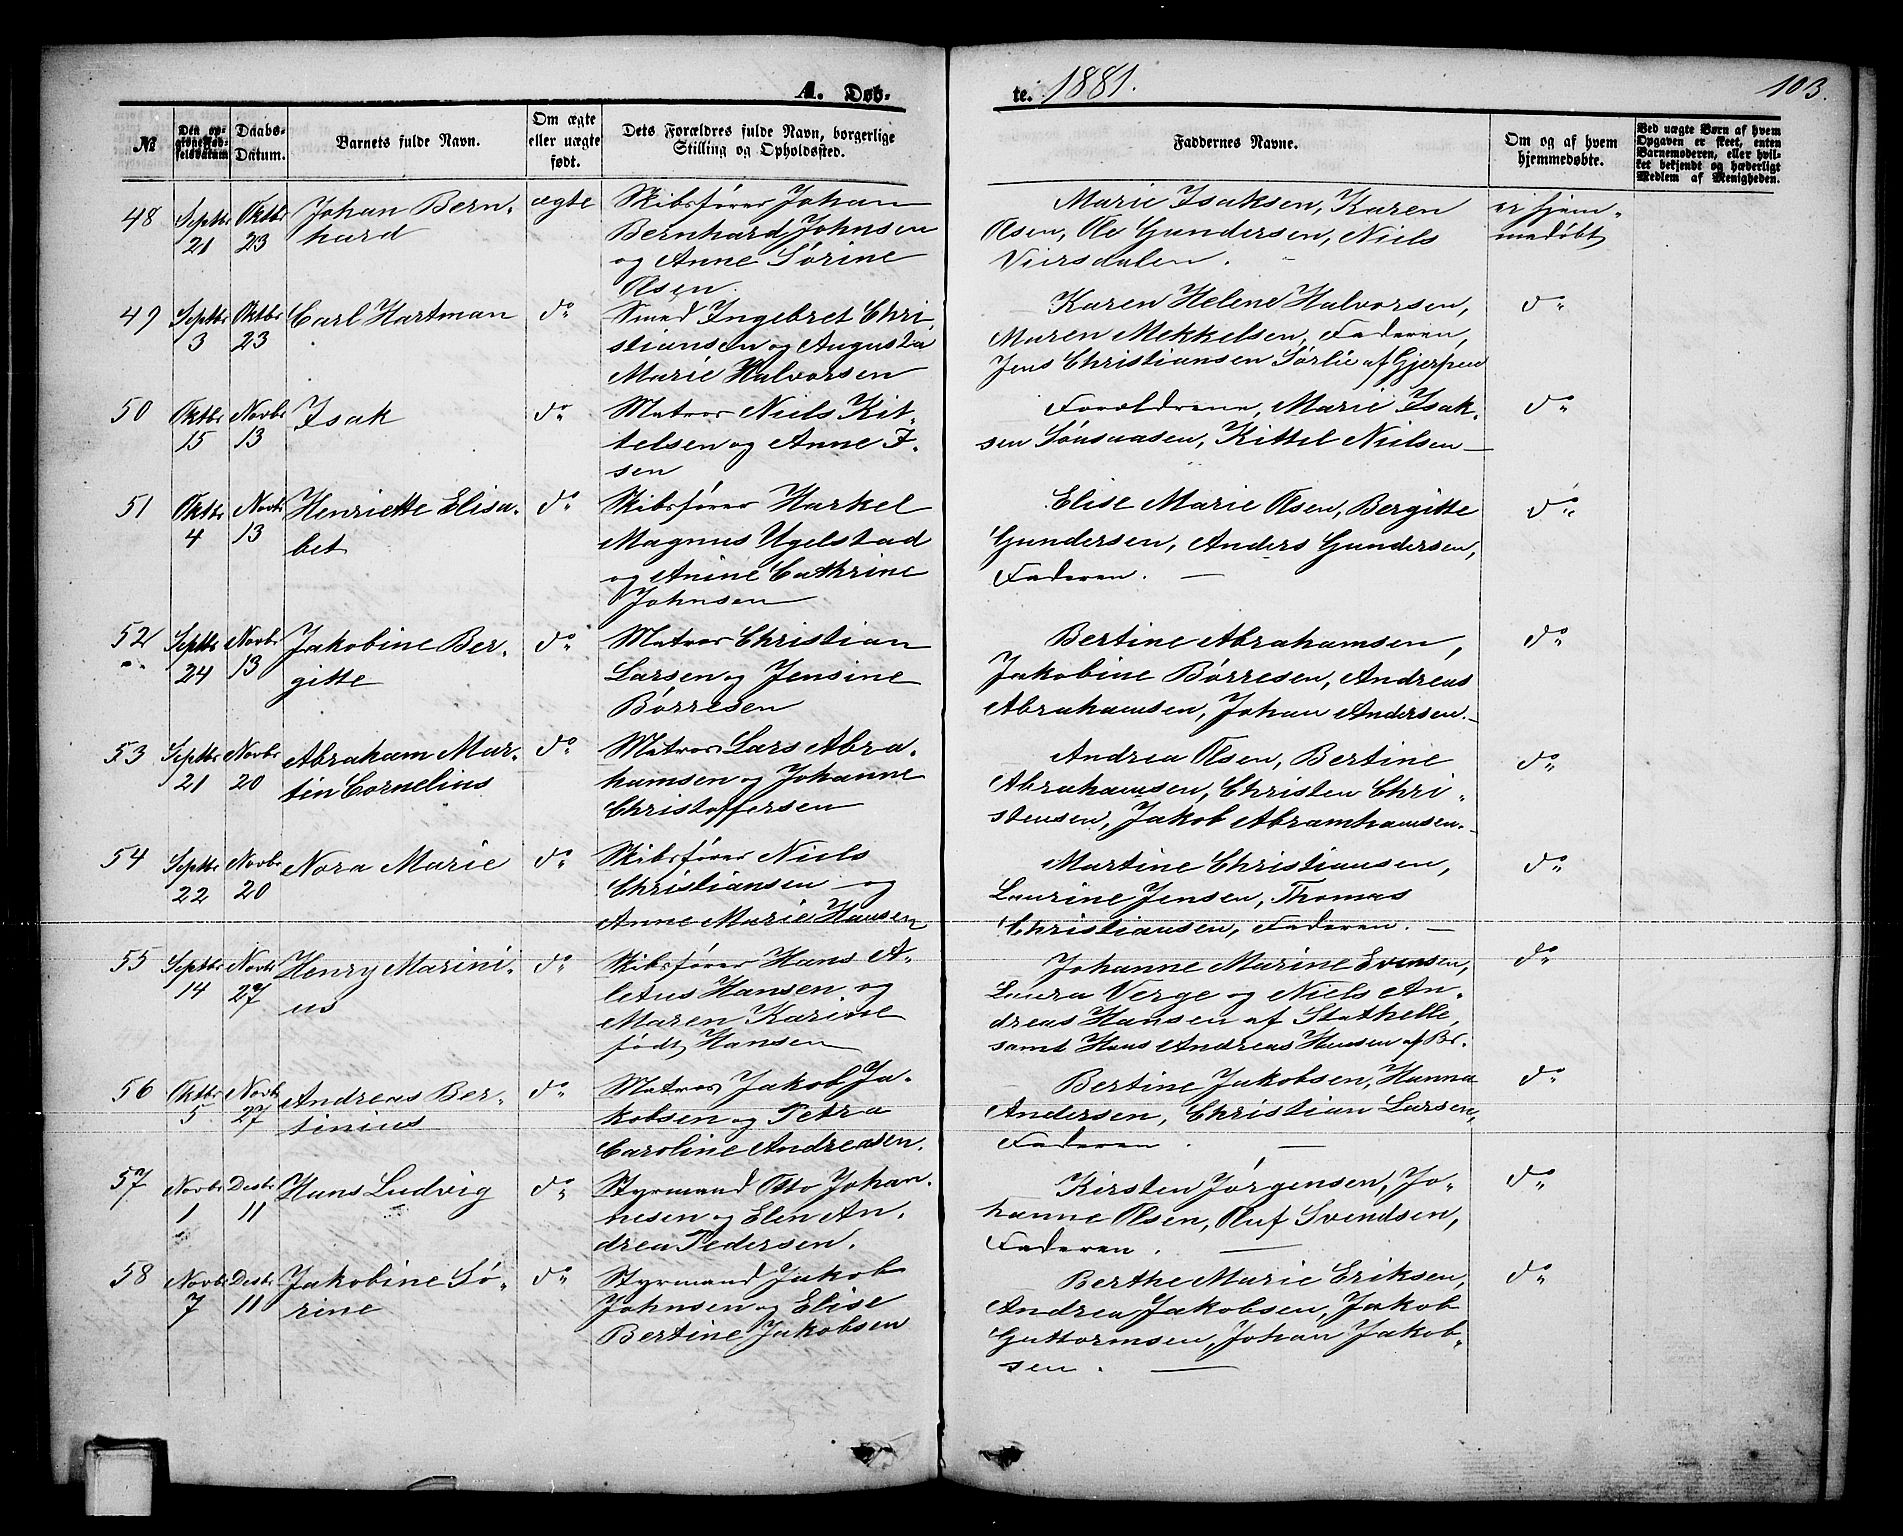 A. Døb-
te. 1881.
103.
№
Den op-
givne Fød-
selsdatum
Daabs-
Datum.
Barnets fulde Navn.
Om ægte
eller uægte
født.
Dets Forældres fulde Navn, borgerlige
Stilling og Opholdssted.
Faddernes Navne.
Om og af hvem
hjemmedøbte.
Ved uægte Børn af hvem
Opgaven er skeet, enten
Barnemoderen, eller hvil-
ket bekjendt og hæderligt
Medlem af Menigheden.
48
Septbr
21
Oktbr
23
Johan Bern-
hard
ægte
Skibsfører Johan
Bernhard Johnsen
og Anne Sørine
Olsen
Marie Isaksen, Karen
Olsen, Ole Gundersen, Niels
Viersdalen.
ei hjem-
medøbt
49
Septbr
3
Oktbr
23
Carl Hartman
do
Smed Ingebret Chri-
stiansen og Augusta
Marie Halvorsen
Karen Helene Halvorsen,
Maren Mekkelsen, Faderen,
Jens Christiansen Sørlie af Gjerpen
do
50
Oktbr
15
Novbr
13
Isak
do
Matros Niels Kit-
telsen og Anne I-
sen
Forældrene, Marie Isak-
sen, Kittel Nielsen
do
51
Oktbr
4
Novbr
13
Henriette Elisa-
bet
do
Skibsfører Harkel
Magnus Ugelstad
og Anine Cathrine
Johnsen
Elise Marie Olsen, Bergitte
Gundersen, Anders Gundersen,
Faderen.
do
52
Septbr
24
Novbr
13
Jakobine Ber-
gitte
do
Matros Christian
Larsen og Jensine
Børresen
Bertine Abrahamsen,
Jakobine Børresen, Andreas
Abrahamsen, Johan Andersen.
do
53
Septbr
21
Novbr
20
Abraham Mar-
tin Cornelius
do
Matros Lars Abra-
hamsen og Johanne
Christoffersen
Andrea Olsen, Bertine
Abrahamsen, Christen Chri-
stensen, Jakob Abramhamsen.
do
54
Septbr
22
Novbr
20
Nora Marie
do
Skibsfører Niels
Christiansen og
Anne Marie Hansen
Martine Christiansen,
Laurine Jensen, Thomas
Christiansen, Faderen.
do
55
Septbr
14
Novbr
27
Henry Marini-
us
do
Skibsfører Hans A-
letus Hansen og
Maren Karine
født Hansen
Johanne Marine Evensen,
Laura Verge og Niels An-
dreas Hansen af Stathelle,
samt Hans Andreas Hansen af Br.
do
56
Oktbr
5
Novbr
27
Andreas Ber-
tinius
do
Matros Jakob Ja-
kobsen og Petra
Caroline Andreasen.
Bertine Jakobsen, Hanna
Andersen, Christian Larsen,
Faderen.
do
57
Novbr
1
Desbr
11
Hans Ludvig
do
Styrmand Otto Johan-
nesen og Elen An-
drea Pedersen.
Kirsten Jørgensen, Jo-
hanne Olsen, Oluf Svendsen,
Faderen.
do
58
Novbr
7
Desbr
11
Jakobine Sø-
rine
do
Styrmand Jakob
Johnsen og Elise
Bertine Jakobsen
Berthe Marie Eriksen,
Andrea Jakobsen, Jakob
Guttormsen, Johan Jakob-
sen.
do